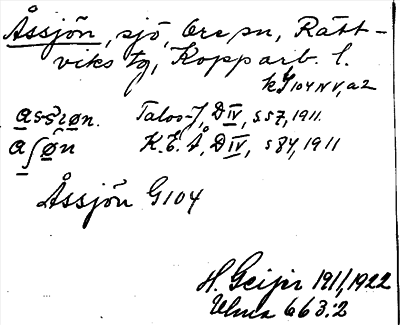 Åssjön, sjö, Ore sn, Rätt-
viks tg, Kopparb. l.
kf 104 NV, a2
Talos-J, DIV, s 57, 1911.
K.E.Å, DIV, s 84, 1911
Åssjön G104
H. Geijer 1911, 1922
Ulma 663:2